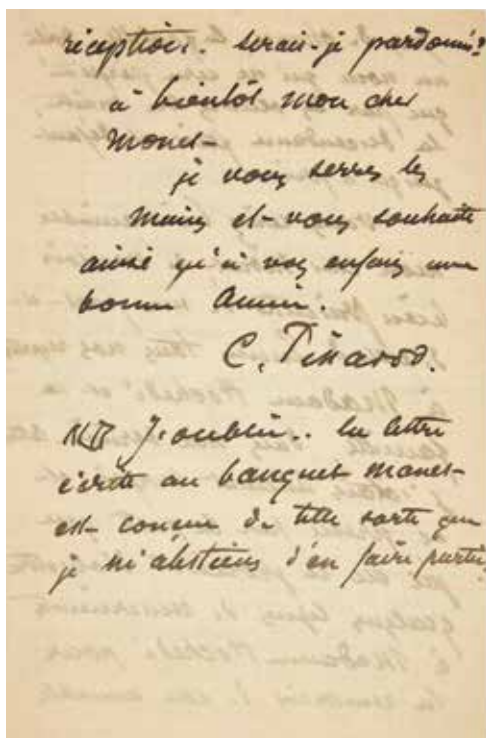 réception. serais-je pardonné?
à bientôt mon cher
Monet-
je vous serres les
mains et vous souhaite
ainsi qu'à vos enfants une
bonne année.
C. Pissarro.
NB J'oublie.. la lettre
écrite au banquet Monet-
est concue de telle sorte que
je m'abstiens d'en faire partie